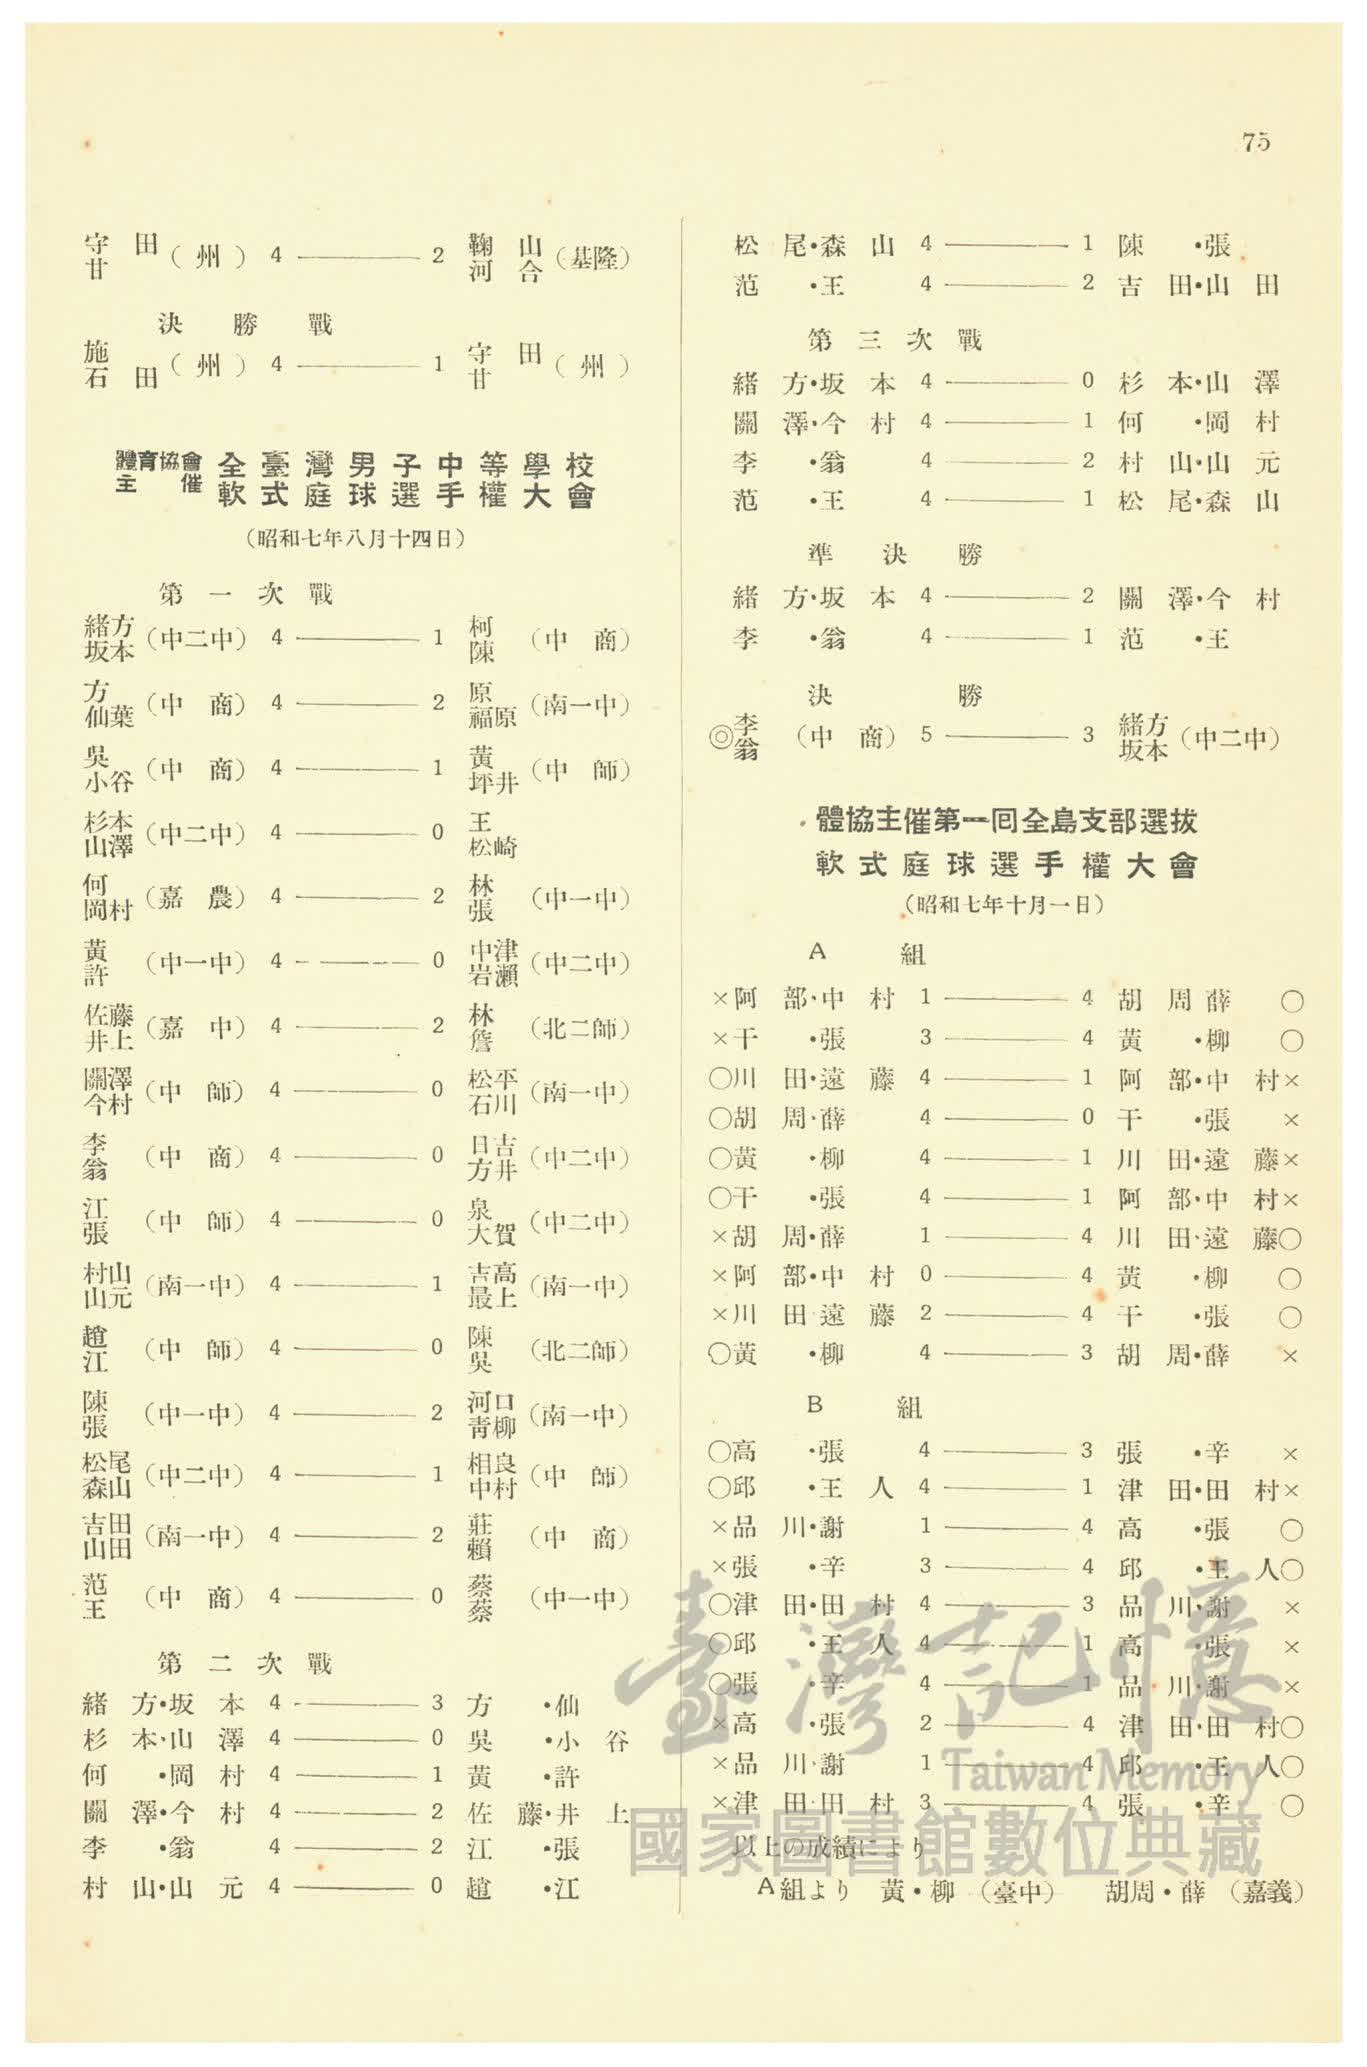 75
守田
甘 (州) 4 ———— 2 鞠山
河合 (基隆)
決勝戰
施
石田 (州) 4 ———— 1 守田
甘 (州)
體育協會
主催
全臺灣男子中等學校
軟式庭球選手權大會
(昭和七年八月十四日)
第一次戰
緒方
坂本 (中二中) 4 ———— 1 柯
陳 (中商)
方
仙葉 (中商) 4 ———— 2 原
福原 (南一中)
吳
小谷 (中商) 4 ———— 1 黃
坪井 (中師)
杉本
山澤 (中二中) 4 ———— 0 王
松崎
何
岡村 (嘉農) 4 ———— 2 林
張 (中一中)
黃
許 (中一中) 4 ———— 0 中津
岩瀨 (中二中)
佐藤
井上 (嘉中) 4 ———— 2 林
詹 (北二師)
關澤
今村 (中師) 4 ———— 0 松平
石川 (南一中)
李
翁 (中商) 4 ———— 0 日吉
方井 (中二中)
江
張 (中師) 4 ———— 0 泉
大賀 (中二中)
村山
山元 (南一中) 4 ———— 1 吉高
最上 (南一中)
趙
江 (中師) 4 ———— 0 陳
吳 (北二師)
陳
張 (中一中) 4 ———— 2 河口
青柳 (南一中)
松尾
森山 (中二中) 4 ———— 1 相良
中村 (中師)
吉田
山田 (南一中) 4 ———— 2 莊
賴 (中商)
范
王 (中商) 4 ———— 0 蔡
蔡 (中一中)
第二次戰
緒方・坂本 4 ———— 3 方・仙
杉本・山澤 4 ———— 0 吳・小谷
何・岡村 4 ———— 1 黃・許
關澤・今村 4 ———— 2 佐藤・井上
李・翁 4 ———— 2 江・張
村山・山元 4 ———— 0 趙・江
松尾・森山 4 ———— 1 陳・張
范・王 4 ———— 2 吉田・山田
第三次戰
緒方・坂本 4 ———— 0 杉本・山澤
關澤・今村 4 ———— 1 何・岡村
李・翁 4 ———— 2 村山・山元
范・王 4 ———— 1 松尾・森山
準決勝
緒方・坂本 4 ———— 2 關澤・今村
李・翁 4 ———— 1 范・王
決勝
◎李
翁 (中商) 5 ———— 3 緒方
坂本 (中二中)
體協主催第一回全島支部選拔
軟式庭球選手權大會
(昭和七年十月一日)
A組
×阿部・中村 1 ———— 4 胡周薛 ○
×干・張 3 ———— 4 黃・柳 ○
○川田・遠藤 4 ———— 1 阿部・中村×
○胡周・薛 4 ———— 0 干・張 ×
○黃・柳 4 ———— 1 川田・遠藤×
○干・張 4 ———— 1 阿部・中村×
×胡周・薛 1 ———— 4 川田・遠藤○
×阿部・中村 0 ———— 4 黃・柳 ○
×川田・遠藤 2 ———— 4 干・張 ○
○黃・柳 4 ———— 3 胡周・薛 ×
B組
○高・張 4 ———— 3 張・辛 ×
○邱・王人 4 ———— 1 津田・田村×
×品川・謝 1 ———— 4 高・張 ○
×張・辛 3 ———— 4 邱・王人○
○津田・田村 4 ———— 3 品川・謝 ×
○邱・王人 4 ———— 1 高・張 ×
○張・辛 4 ———— 1 品川・謝 ×
×高・張 2 ———— 4 津田・田村○
×品川・謝 1 ———— 4 邱・王人○
×津田・田村 3 ———— 4 張・辛 ○
以上の成績により
A組より 黃・柳 (臺中) 胡周・薛 (嘉義)
臺灣記憶
Taiwan Memory
國家圖書館數位典藏